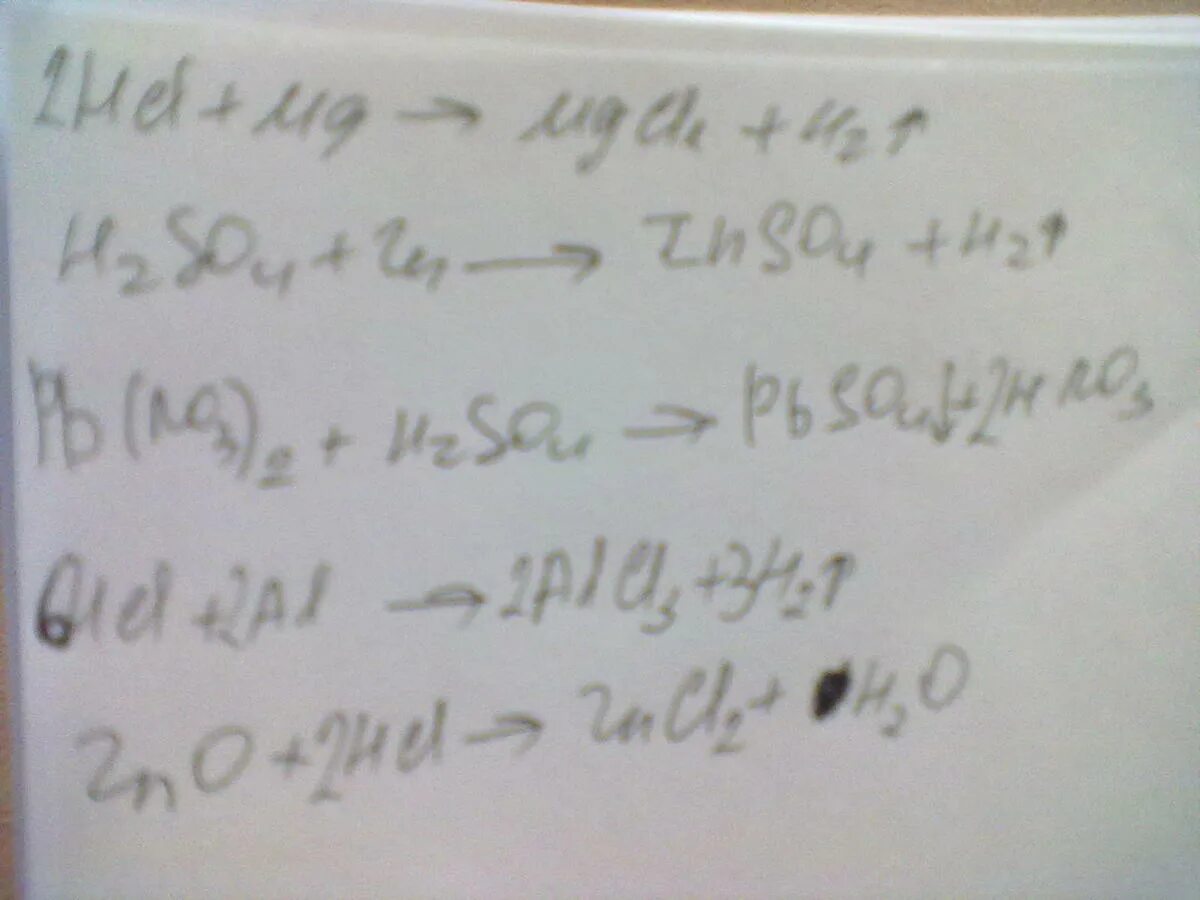 2HCl + Mg → MgCl₂ + H₂↑
H₂SO₄ + Zn → ZnSO₄ + H₂↑
Pb(NO₃)₂ + H₂SO₄ → PbSO₄↓ + 2HNO₃
6HCl + 2Al → 2AlCl₃ + 3H₂↑
ZnO + 2HCl → ZnCl₂ + H₂O